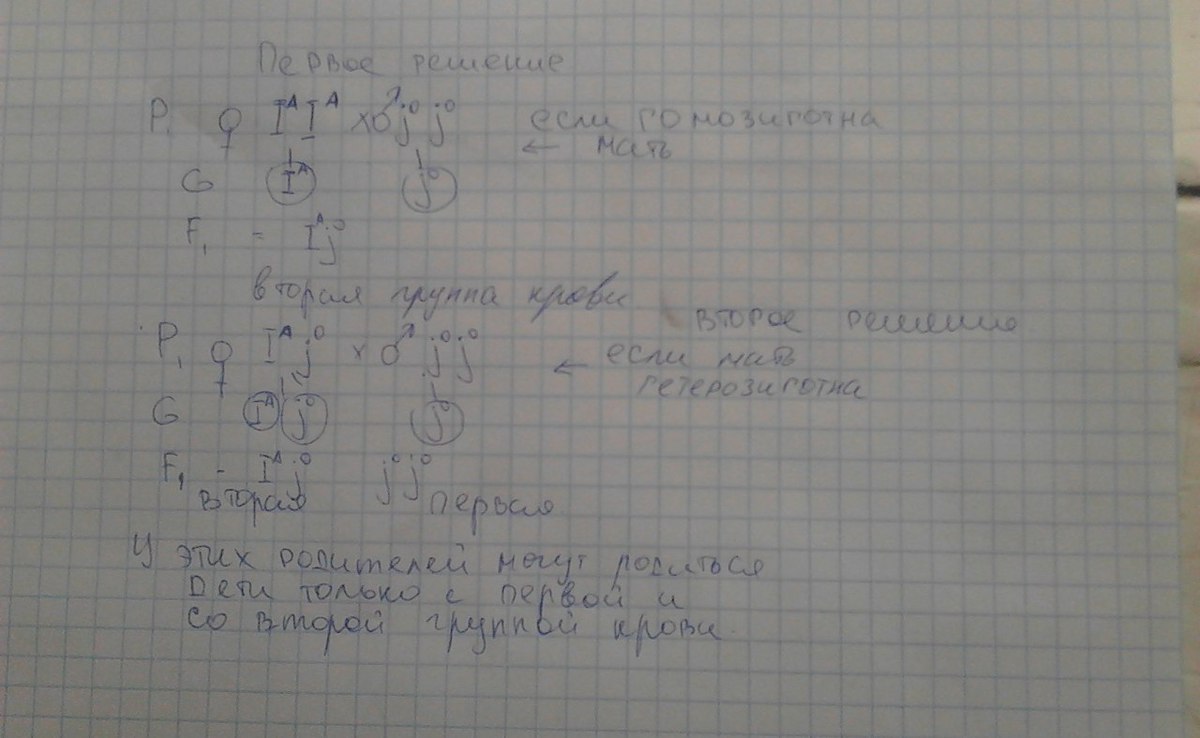 Первое решение
P. ♀ Iᴬ Iᴬ × ♂ j⁰ j⁰ если гомозиготна
← мать
G Iᴬ j⁰
F₁ = Iᴬj⁰
вторая группа крови
второе решение
P₁ ♀ Iᴬ j⁰ × ♂ j⁰ j⁰ ← если мать
гетерозиготна
G Iᴬ j⁰ j⁰
F₁ - Iᴬ j⁰ j⁰j⁰
вторая первая
У этих родителей могут родиться
Дети только с первой и
со второй группой крови.